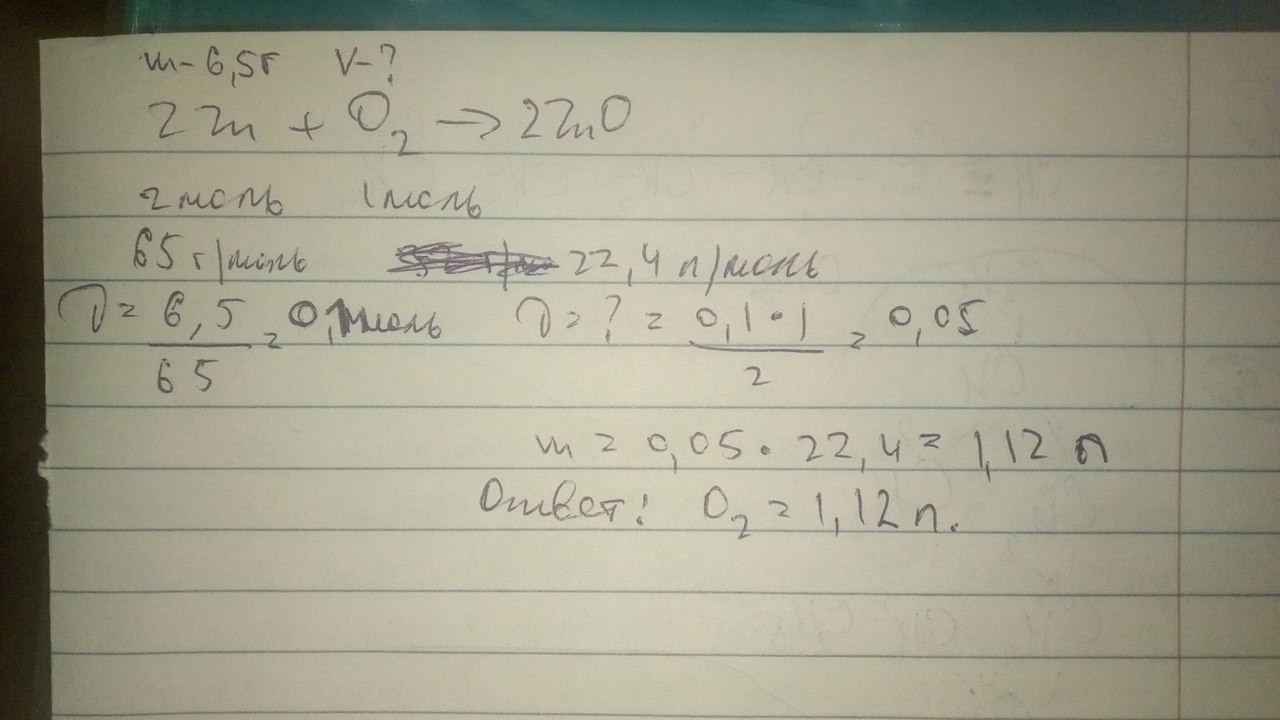 m-6,5г V-?
2Zn + O₂ → 2ZnO
2 моль 1 моль
65 г/моль 22,4 л/моль
ν = 6,5/65 = 0,1 моль ν = ? = 0,1·1/2 = 0,05
m = 0,05 · 22,4 = 1,12 л
Ответ: O₂ = 1,12 л.